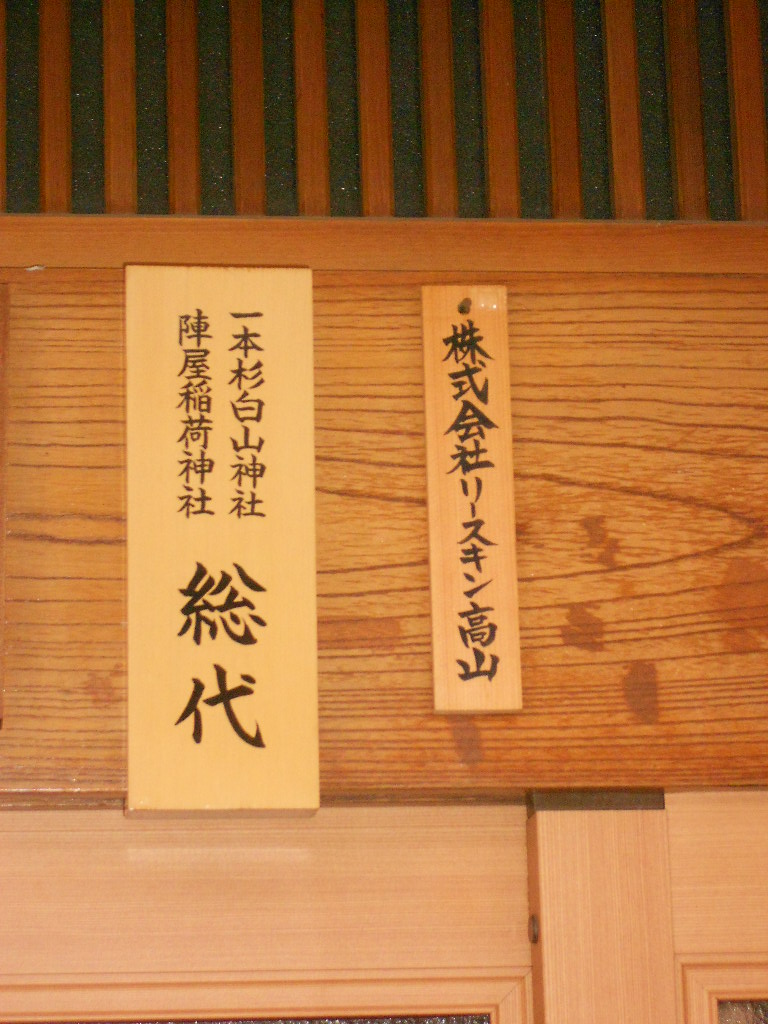 株式会社リースキン高山
一本杉白山神社
陣屋稲荷神社
総代